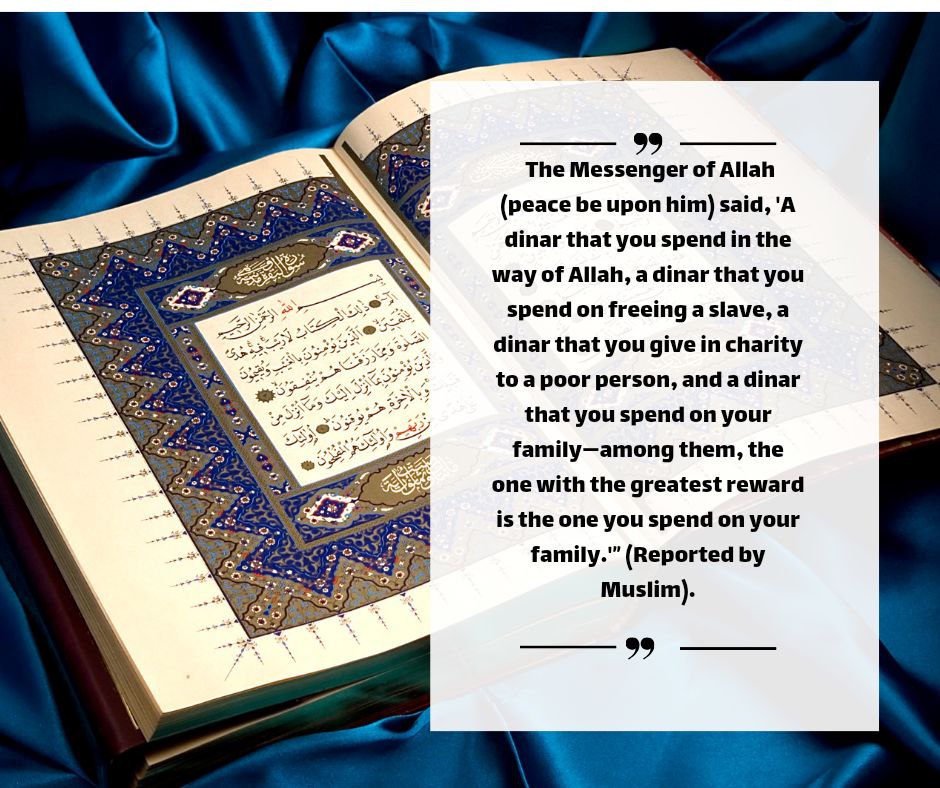 ”
The Messenger of Allah
(peace be upon him) said, 'A
dinar that you spend in the
way of Allah, a dinar that you
spend on freeing a slave, a
dinar that you give in charity
to a poor person, and a dinar
that you spend on your
family—among them, the
one with the greatest reward
is the one you spend on your
family.'” (Reported by
Muslim).
”
بسم الله الرحمن الرحيم
ذلك الكتاب لا ريب فيه هدى
للمتقين الذين يؤمنون بالغيب ويقيمون